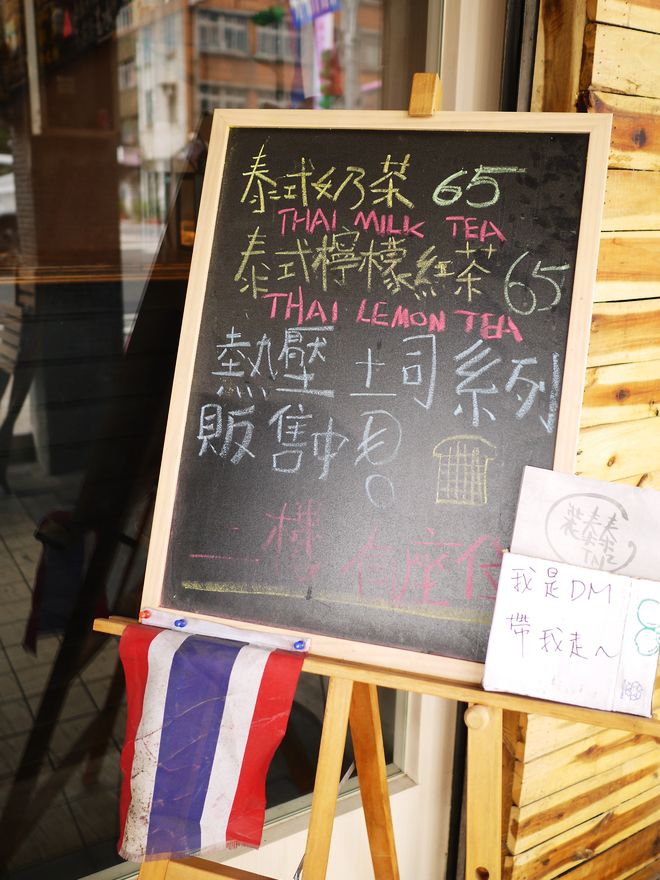 泰式奶茶 65
THAI MILK TEA
泰式檸檬紅茶 65
THAI LEMON TEA
熱壓土司系列
販售中
二樓有座位
我是DM
帶我走~